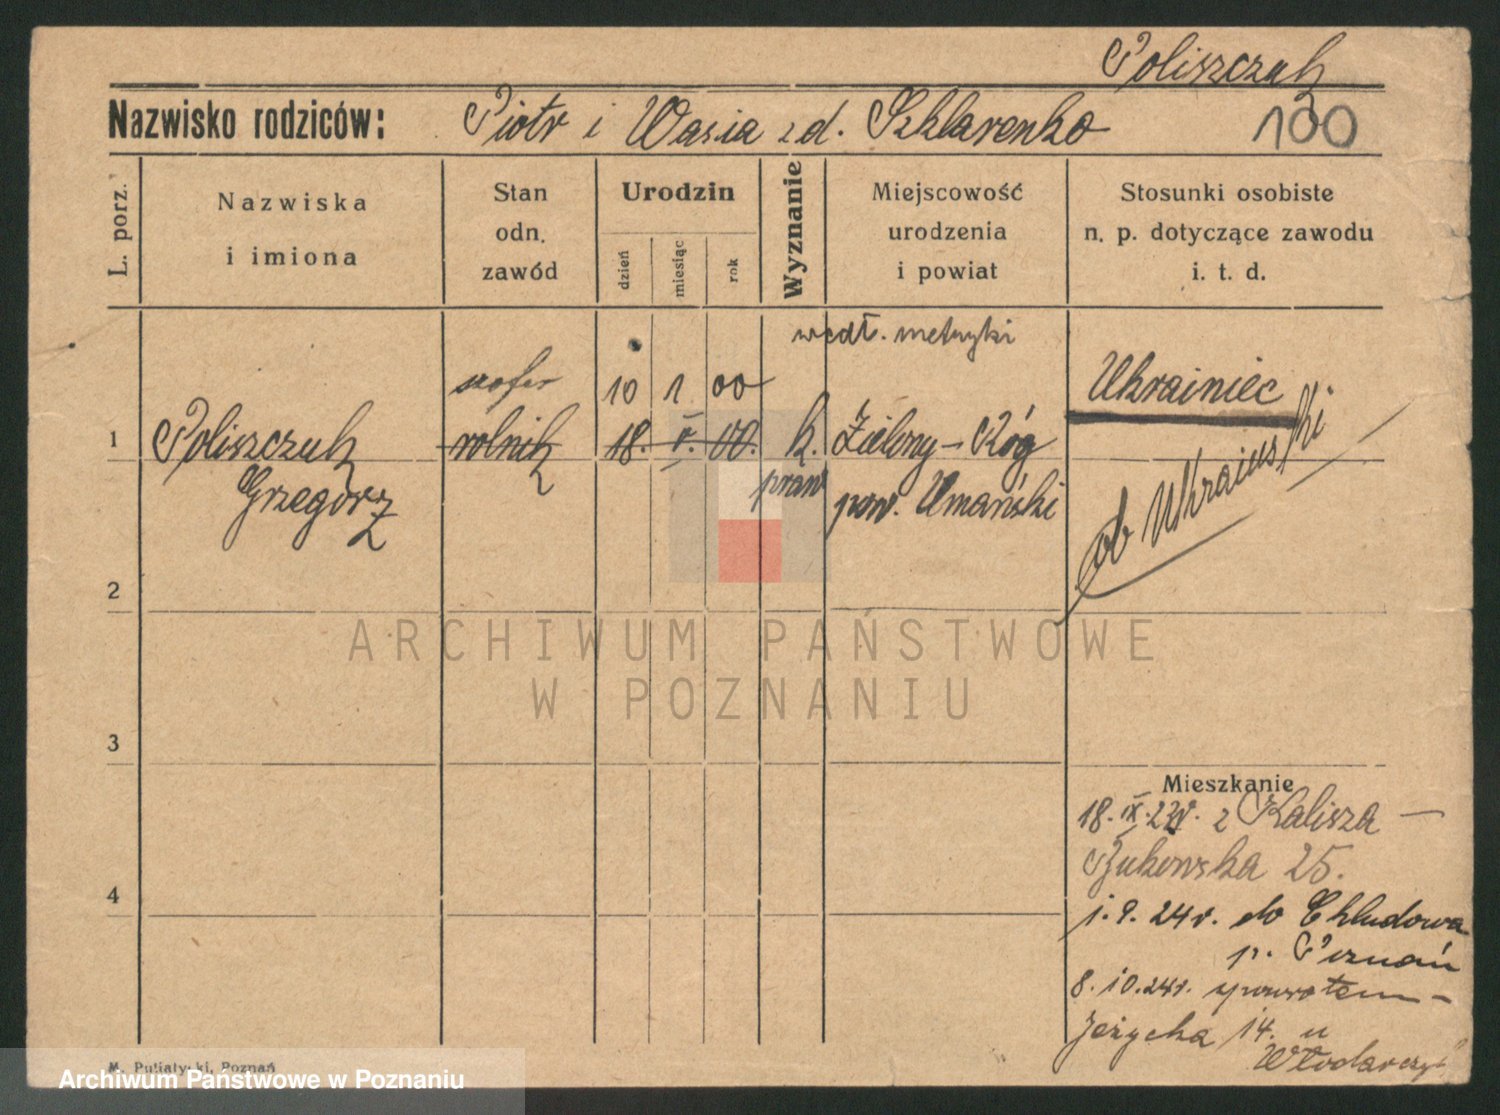 Poliszczuk
Nazwisko rodziców: Piotr i Wasia z d. Szklarenko 100
L. porz.
Nazwiska
i imiona
Stan
odn.
zawód
Urodzin
dzień
miesiąc
rok
Wyznanie
Miejscowość
urodzenia
i powiat
Stosunki osobiste
n. p. dotyczące zawodu
i. t. d.
wedł. metryki
szofer 10 1 00
Ukrainiec
1 Poliszczuk rolnik 18. V. 00. k. Zielony-Róg
Grzegorz praw pow. Umański
ob Ukraiński
2
3
4
Mieszkanie
18. IX. 22r. z Kalisza
Bukowska 25.
1.9. 24r. do Chludowa
p. Poznań
8.10.24r. zpowrotem
Jeżycka 14. u
Włodarczyk
M. Putiatycki, Poznań
ARCHIWUM PAŃSTWOWE
W POZNANIU
Archiwum Państwowe w Poznaniu